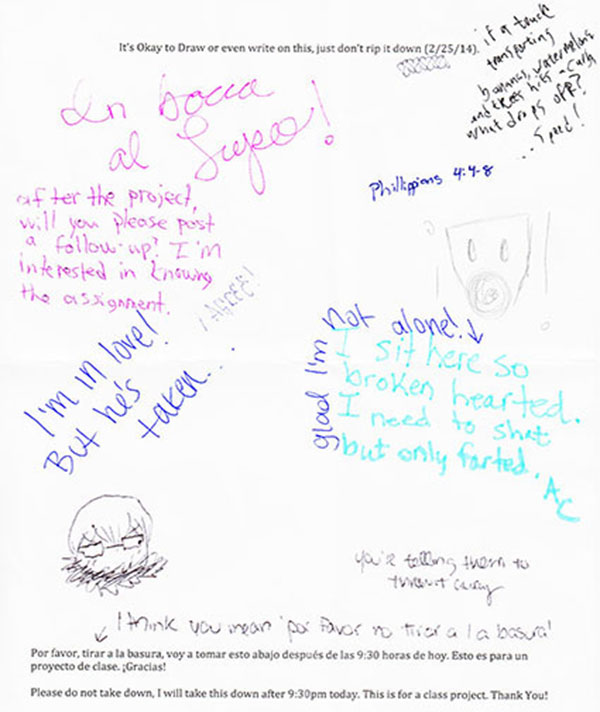 It's Okay to Draw or even write on this, just don't rip it down (2/25/14).
if a truck
transporting
bananas, watermelons
and kiwis hits a curb,
what drops off?
... Speed!
In bocca
al Lupo!
Phillippians 4:4-8
after the project,
will you please post
a follow-up? I'm
interested in knowing
the assignment.
I AGREE!
I'm in love!
But he's
taken...
glad I'm not alone!↓
I sit here so
broken hearted.
I need to shit
but only farted.
AC
you're telling them to
throw it away
I think you mean 'por favor no tirar a la basura'
Por favor, tirar a la basura, voy a tomar esto abajo después de las 9:30 horas de hoy. Esto es para un
proyecto de clase. ¡Gracias!
Please do not take down, I will take this down after 9:30pm today. This is for a class project. Thank You!